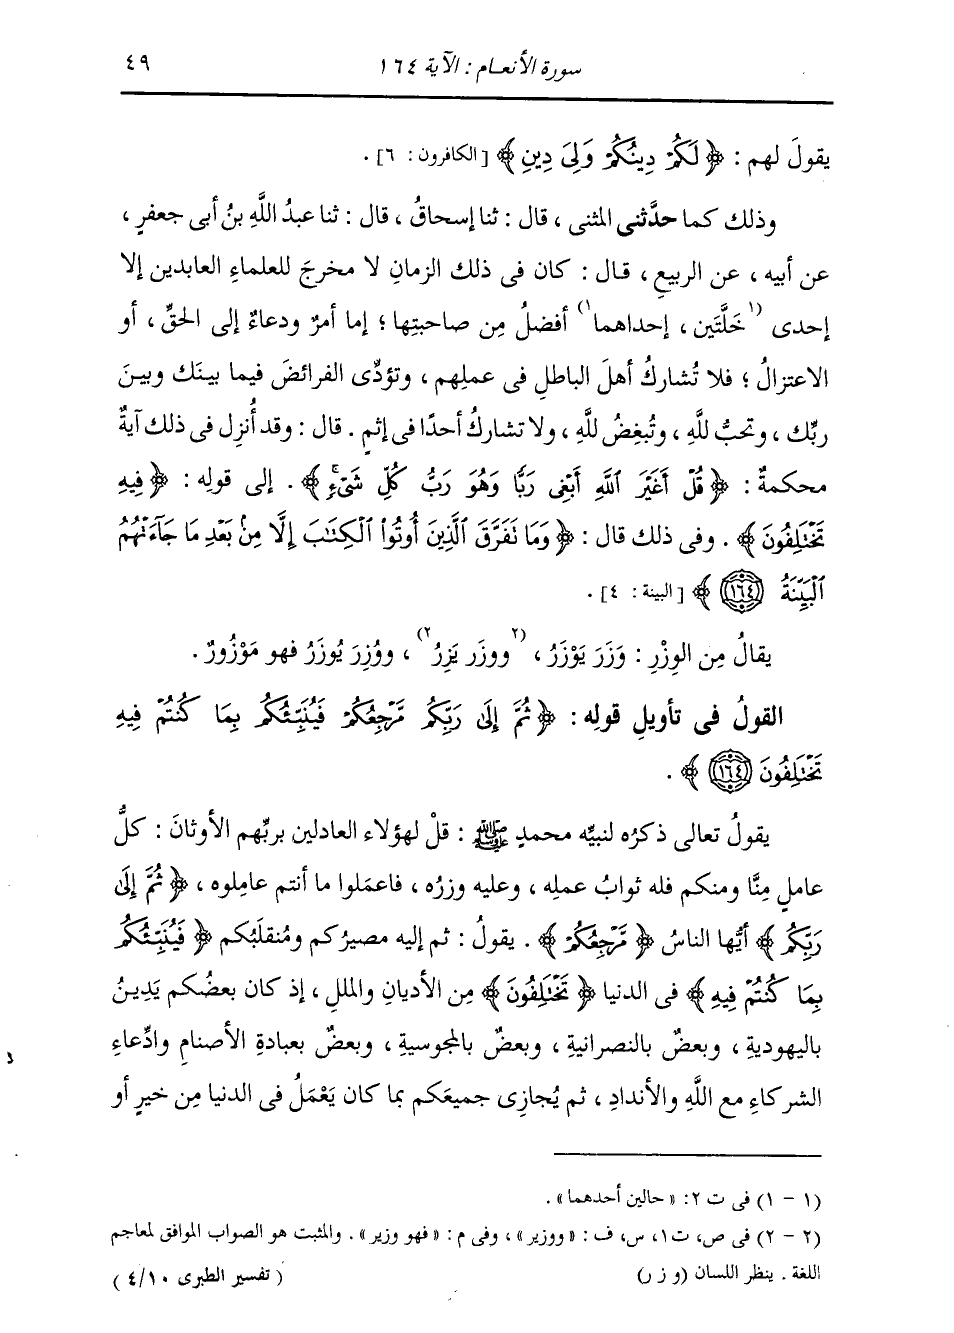 سورة الأنعام : الآية ١٦٤
٤٩
يقولَ لهم : ﴿ لَكُمْ دِينُكُمْ وَلِىَ دِينِ ﴾ [ الكافرون : ٦] .
وذلك كما حدَّثنى المثنى ، قال : ثنا إسحاقُ ، قال : ثنا عبدُ اللَّهِ بنُ أبى جعفرٍ ،
عن أبيه ، عن الربيعِ ، قال : كان فى ذلك الزمانِ لا مخرجَ للعلماءِ العابدين إلا
إحدى (١ خَلَّتَين ، إحداهما ١) أفضلُ مِن صاحبتِها ؛ إما أمرٌ ودعاءٌ إلى الحقِّ ، أو
الاعتزالُ ؛ فلا تُشاركُ أهلَ الباطلِ فى عملِهم ، وتؤدِّى الفرائضَ فيما بينَك وبينَ
ربِّك ، وتحبُّ للَّهِ ، وتُبغِضُ للَّهِ ، ولا تشاركُ أحدًا فى إثمٍ . قال : وقد أُنزِل فى ذلك آيةٌ
محكمةٌ : ﴿ قُلْ أَغَيْرَ ٱللَّهِ أَبْغِى رَبًّا وَهُوَ رَبُّ كُلِّ شَىْءٍ ﴾ . إلى قولِه : ﴿ فِيهِ
تَخْتَلِفُونَ ﴾ . وفى ذلك قال : ﴿ وَمَا نَفَرَّقَ ٱلَّذِينَ أُوتُوا۟ ٱلْكِتَٰبَ إِلَّا مِنۢ بَعْدِ مَا جَآءَتْهُمُ
ٱلْبَيِّنَةُ (١٦٤) ﴾ [ البينة : ٤] .
يقالُ مِن الوِزْرِ : وَزَرَ يَوْزَرُ ، (٢ ووزَر يَزِرُ ٢) ، ووُزِرَ يُوزَرُ فهو مَوْزُورٌ .
القولُ فى تأويلِ قولِه : ﴿ ثُمَّ إِلَىٰ رَبِّكُم مَّرْجِعُكُمْ فَيُنَبِّئُكُم بِمَا كُنتُمْ فِيهِ
تَخْتَلِفُونَ (١٦٤) ﴾ .
يقولُ تعالى ذكرُه لنبيِّه محمدٍ ﷺ : قلْ لهؤلاء العادلين بربِّهم الأوثانَ : كلُّ
عاملٍ مِنَّا ومنكم فله ثوابُ عملِه ، وعليه وزرُه ، فاعمَلوا ما أنتم عامِلوه ، ﴿ ثُمَّ إِلَىٰ
رَبِّكُم ﴾ أيُّها الناسُ ﴿ مَّرْجِعُكُمْ ﴾ . يقولُ : ثم إليه مصيرُكم ومُنقلَبُكم ﴿ فَيُنَبِّئُكُم
بِمَا كُنتُمْ فِيهِ ﴾ فى الدنيا ﴿ تَخْتَلِفُونَ ﴾ مِن الأديانِ والمللِ ، إذ كان بعضُكم يَدِينُ
باليهوديةِ ، وبعضٌ بالنصرانيةِ ، وبعضٌ بالمجوسيةِ ، وبعضٌ بعبادةِ الأصنامِ وادِّعاءِ
الشركاءِ مع اللَّهِ والأندادِ ، ثم يُجازِى جميعَكم بما كان يَعْمَلُ فى الدنيا مِن خيرٍ أو
(١ - ١) فى ت ٢ : « حالين أحدهما » .
(٢ - ٢) فى ص ، ت١ ، س ، ف : « ووزير » ، وفى م : « فهو وزير » . والمثبت هو الصواب الموافق لمعاجم
اللغة . ينظر اللسان (و ز ر)
( تفسير الطبرى ٤/١٠ )